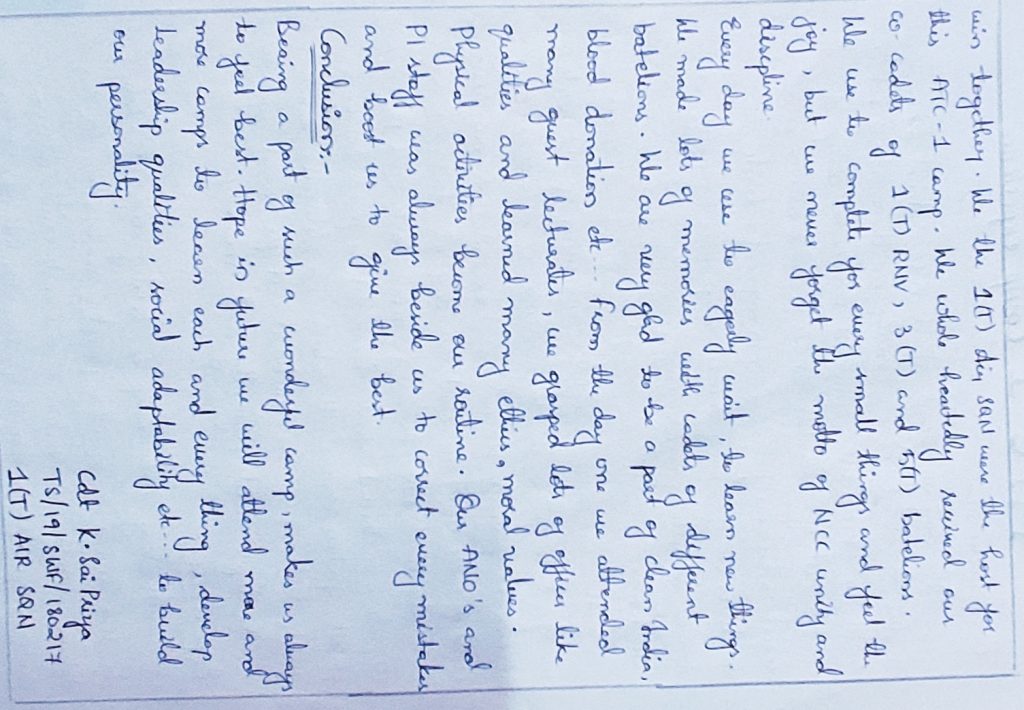 win together. We the 1(T) Air SQN were the host for
this ATC-1 camp. We whole heartedly received our
co-cadets of 1(T) RNV, 3(T) and 5(T) batelions.
We use to complete for every small things and feel the
joy, but we never forget the motto of NCC unity and
discipline.
Every day we use to eagerly wait, to learn new things.
We made lots of memories with cadets of different
batelions. We are very glad to be a part of clean India,
blood donation etc... From the day one we attended
many guest leturates, we grasped lots of offier like
qualities and learned many ethics, moral values.
Physical ativities become our routine. Our ANO's and
PI staff was always beside us to correct every mistakes
and boost us to give the best.
Conclusion:-
Being a part of such a wonderful camp, makes us always
to feel best. Hope in future we will attend more and
more camps to learn each and every thing, develop
leadership qualities, social adaptability etc... to build
our personality.
Cdt K. Sai Priya
TS/19/SWF/180217
1(T) AIR SQN